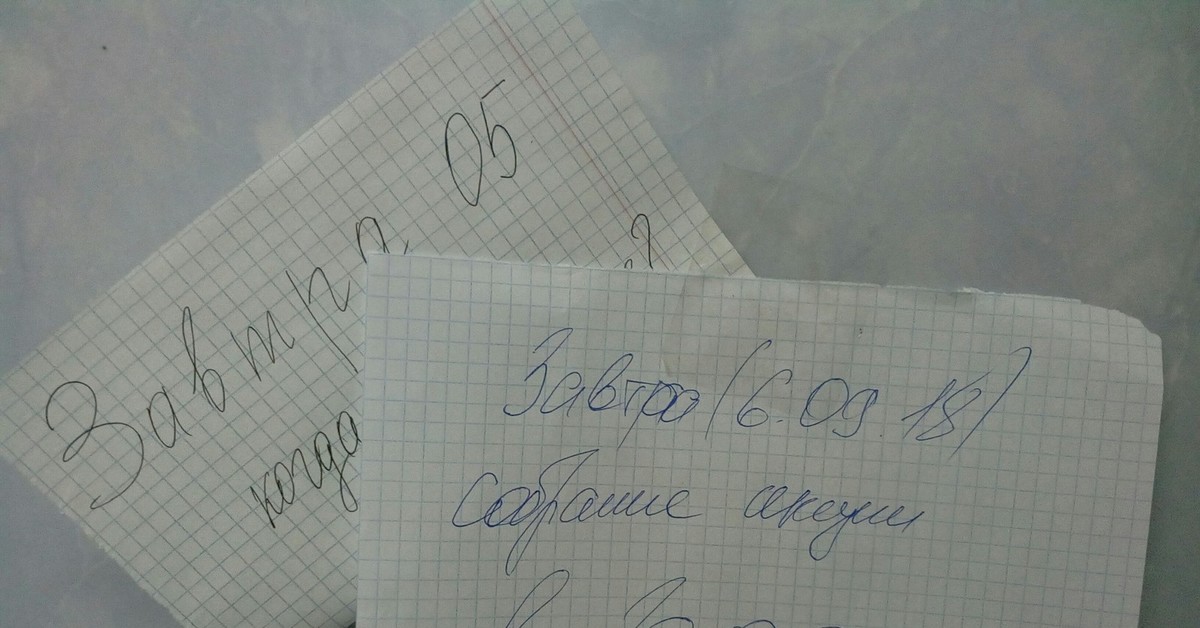 Завтра 05
когда
?
Завтра (6.09.18)
собрание
в